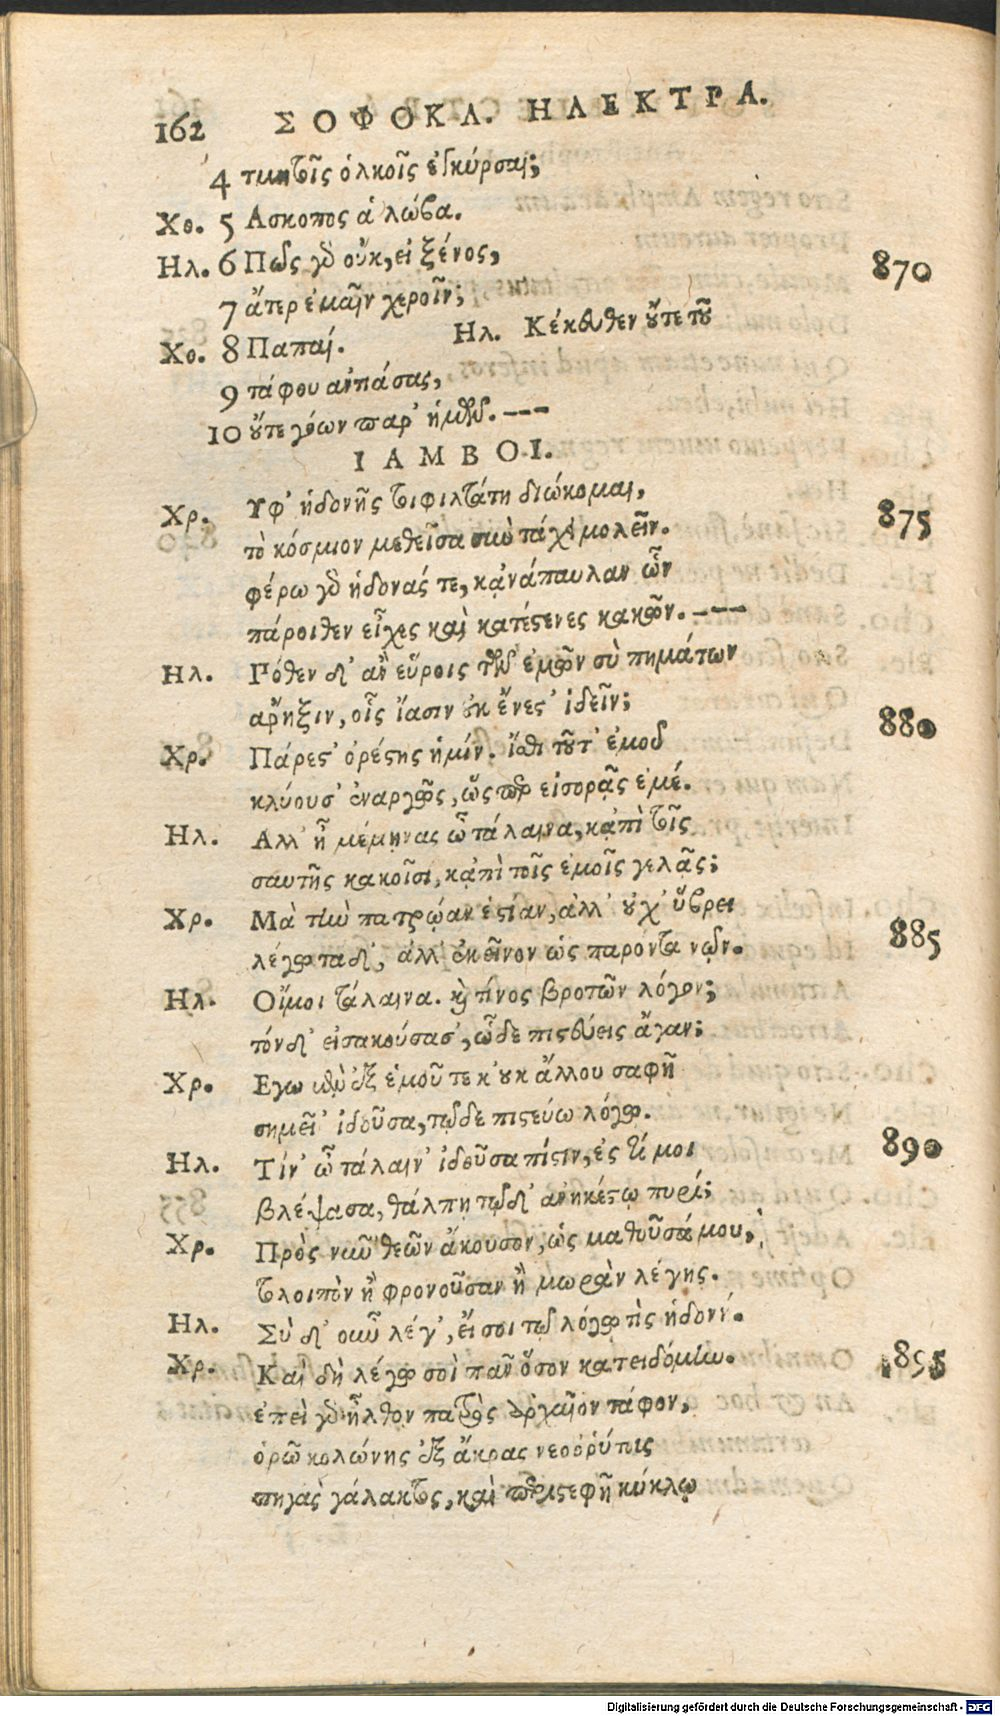 162 ΣΟΦΟΚΛ. ΗΛΕΚΤΡΑ.
4 τμητοῖς ὁλκοῖς ἐγκύρσαι;
Χο. 5 Ασκοπος ἁ λώβα.
Ηλ. 6 Πῶς γὰρ οὔκ, εἰ ξένος, 870
7 ἄτερ ἐμᾶιν χεροῖν;
Χο. 8 Παπαί. Ηλ. Κέκευθεν οὔτε του
9 τάφου ἀντιάσας,
10 οὔτε γόων παρ' ἡμῶν. ---
ΙΑΜΒΟΙ.
Χρ. Υφ' ἡδονῆς τοι φιλτάτη διώκομαι, 875
τὸ κόσμιον μεθεῖσα σὺν τάχει μολεῖν.
φέρω γὰρ ἡδονάς τε, κᾀνάπαυλαν ὧν
πάροιθεν εἶχες καὶ κατέστενες κακῶν. ---
Ηλ. Πόθεν δ' ἂν εὕροις τῶν ἐμῶν σὺ πημάτων
ἄρηξιν, οἷς ἴασιν οὐκ ἔνεστ' ἰδεῖν; 880
Χρ. Πάρεστ' ὀρέστης ἡμίν. ἴσθι τοῦτ' ἐμοῦ
κλύουσ' ἐναργῶς, ὥσπερ εἰσορᾷς ἐμέ.
Ηλ. Αλλ' ἦ μέμηνας ὦ τάλαινα, κᾀπὶ τοῖς
σαυτῆς κακοῖσι, κᾀπὶ τοῖς ἐμοῖς γελᾷς;
Χρ. Μὰ τὴν πατρῴαν ἑστίαν, ἀλλ' οὐχ' ὕβρει 885
λέγω ταδ', ἀλλ' ἐκεῖνον ὡς παρόντα νῷν.
Ηλ. Οἴμοι τάλαινα. καὶ τίνος βροτῶν λόγον;
τόνδ' εἰσακούσασ', ὧδε πιστεύεις ἄγαν;
Χρ. Εγω μὲν ἐξ ἐμοῦ τε κ' οὐκ ἄλλου σαφῆ
σημεῖ' ἰδοῦσα, τῷδε πιστεύω λόγῳ.
Ηλ. Τίν' ὦ τάλαιν' ἰδοῦσα πίστιν, ἐς τί μοι 890
βλέψασα, θάλπῃ τῷδ' ἀνηκέστῳ πυρί;
Χρ. Πρὸς νυῦ θεῶν ἄκουσον, ὡς μαθοῦσά μου,
τολοιπὸν ἢ φρονοῦσαν ἢ μωρὰν λέγῃς.
Ηλ. Σὺ δ' οὖν λέγ', εἴ σοι τῷ λόγῳ τὶς ἡδονή.
Χρ. Καὶ δὴ λέγω σοὶ πᾶν ὅσον κατειδόμην. 895
ἐπεὶ γὰρ ἦλθον πατρὸς ἀρχαῖον τάφον,
ὁρῶ κολώνης ἐξ ἄκρας νεορρύτις
πηγὰς γάλακτος, καὶ περιστεφῆ κύκλῳ
Digitalisierung gefördert durch die Deutsche Forschungsgemeinschaft - DFG